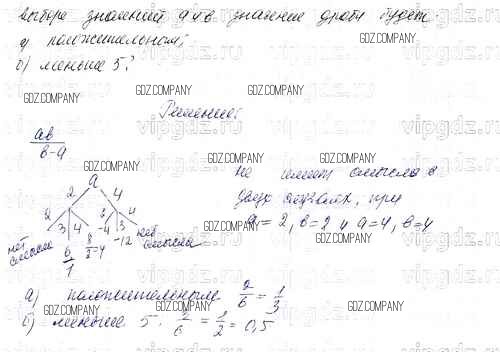 выборе значений a и в значение дроби будет
а) положительным;
б) меньше 5?
Решение:
ав
в-а
а
2 4
2 3 4 3 3 4
нет смысла 6/1 8/2=4 -4 -12 нет смысла
не имеет смысла в
двух случаях, при
а=2, в=2 и а=4, в=4
а) положительным 2/6 = 1/3
б) меньше 5. 3/6 = 1/2 = 0,5
GDZ.COMPANY
vipgdz.ru